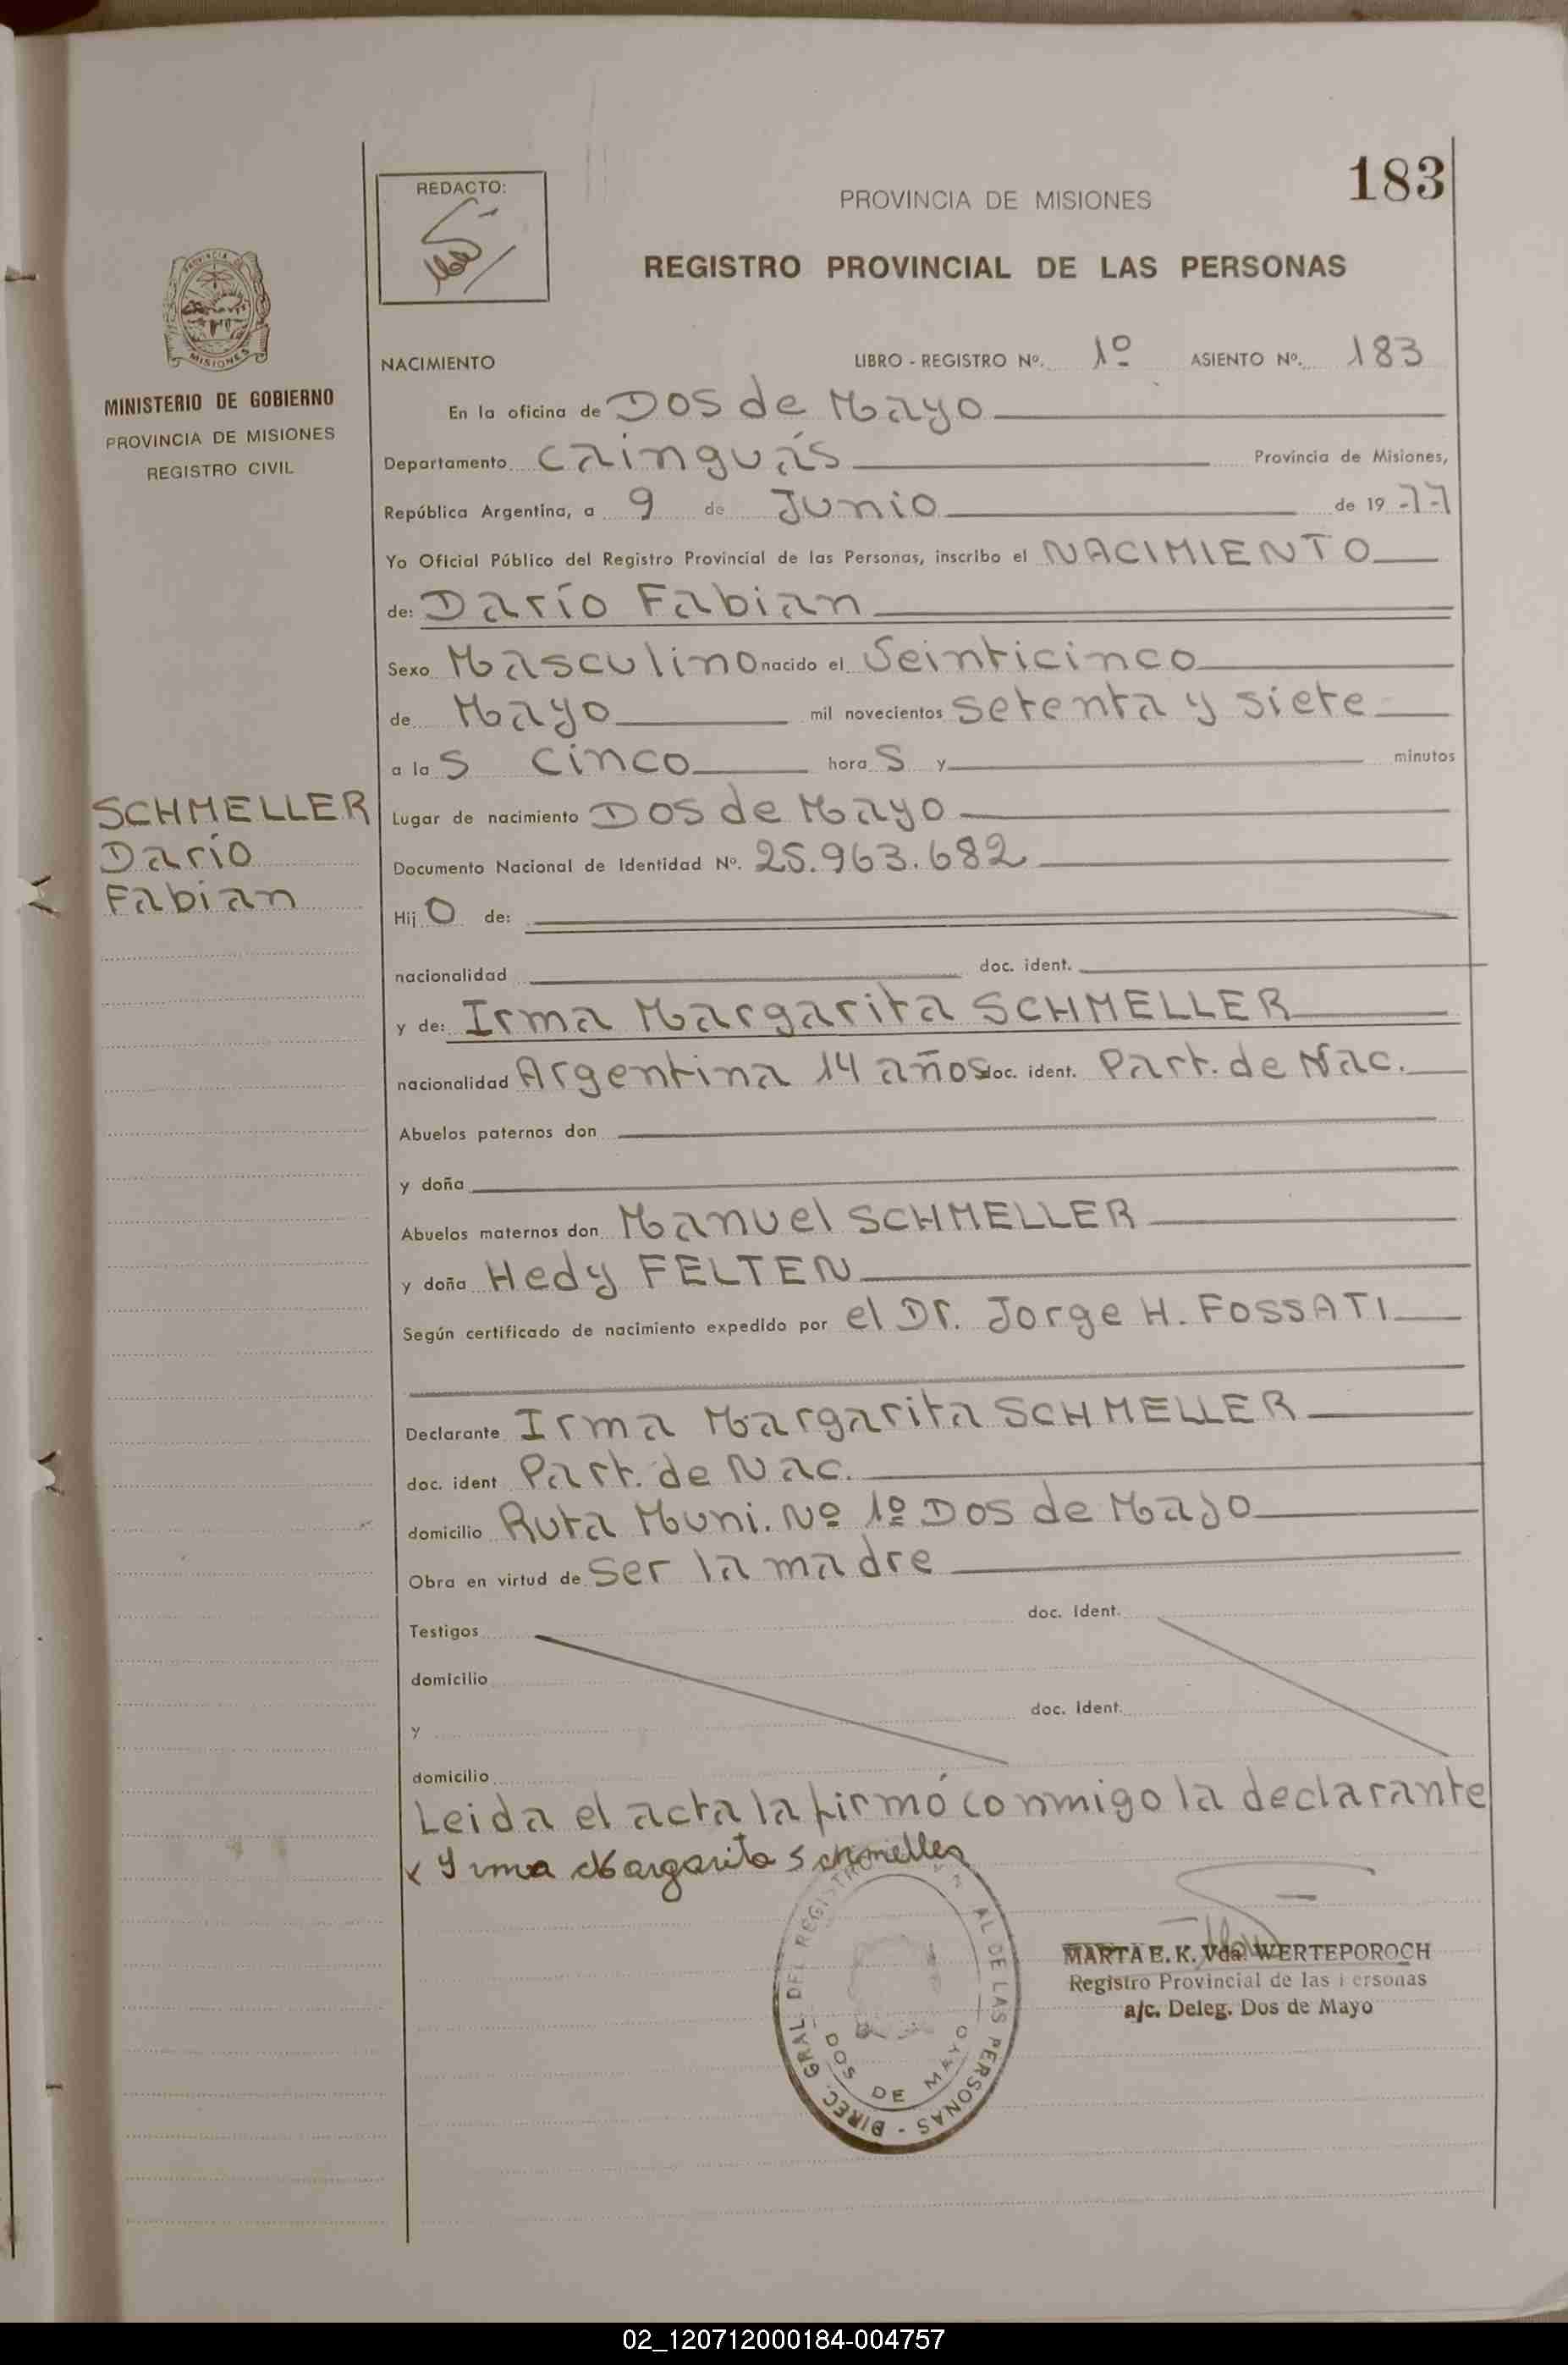 183
REDACTO:
PROVINCIA DE MISIONES
REGISTRO PROVINCIAL DE LAS PERSONAS
MISIONES
MINISTERIO DE GOBIERNO
PROVINCIA DE MISIONES
REGISTRO CIVIL
NACIMIENTO LIBRO - REGISTRO Nº. 1º ASIENTO Nº. 183
En la oficina de Dos de Mayo
Departamento Cainguás Provincia de Misiones,
República Argentina, a 9 de Junio de 19 77
Yo Oficial Público del Registro Provincial de las Personas, inscribo el NACIMIENTO
de: Darío Fabian
Sexo Masculino nacido el Veinticinco
de Mayo mil novecientos setenta y siete
a las cinco horas y minutos
SCHMELLER
Darío
Fabian
Lugar de nacimiento Dos de Mayo
Documento Nacional de Identidad Nº. 25.963.682
Hijo de:
nacionalidad doc. ident.
y de: Irma Margarita SCHMELLER
nacionalidad Argentina 14 años doc. ident. Part. de Nac.
Abuelos paternos don
y doña
Abuelos maternos don Manuel SCHMELLER
y doña Hedy FELTEN
Según certificado de nacimiento expedido por el Dr. Jorge H. FOSSATI
Declarante Irma Margarita SCHMELLER
doc. ident Part. de Nac.
domicilio Ruta Muni. Nº 1º Dos de Mayo
Obra en virtud de ser la madre
Testigos doc. Ident.
domicilio
y doc. Ident.
domicilio
Leida el acta la firmó conmigo la declarante
x Irma Margarita Schmeller
DIREC. GRAL. DEL REGISTRO AL DE LAS PERSONAS -
DOS DE MAYO
MARTA E. K. Vda. WERTEPOROCH
Registro Provincial de las Personas
a/c. Deleg. Dos de Mayo
02_120712000184-004757